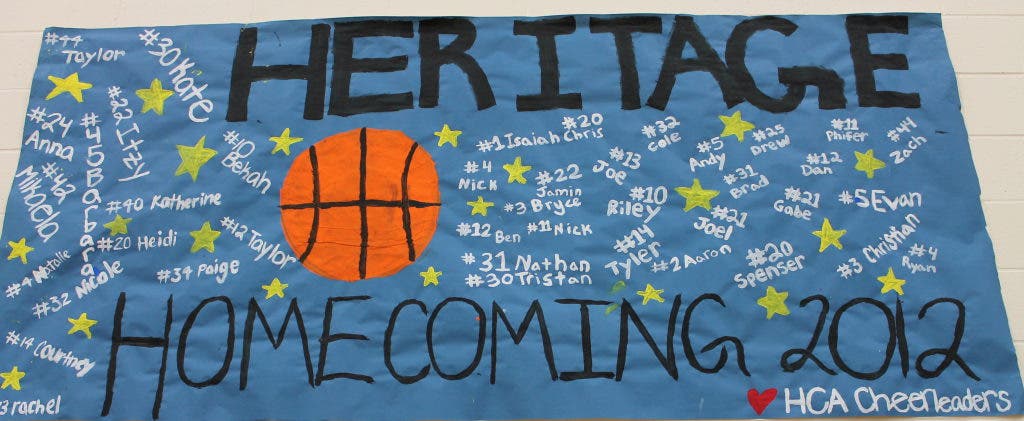 HERITAGE
#44 Taylor
#30 Kate
#24 Anna
#22 Itzy
#45 Barbara
#42 Mikaela
#10 Bekah
#40 Katherine
#20 Heidi
#12 Taylor
#4 Natalie
#32 Nicole
#34 Paige
#14 Courtney
#3 rachel
#1 Isaiah
#20 Chris
#4 Nick
#22 Jamin
#3 Bryce
#12 Ben
#11 Nick
#31 Nathan
#30 Tristan
#13 Joe
#32 Cole
#10 Riley
#14 Tyler
#2 Aaron
#5 Andy
#25 Drew
#31 Brad
#21 Joel
#20 Spenser
#11 Phifer
#12 Dan
#21 Gabe
#44 Zach
#5 Evan
#3 Christian
#4 Ryan
HOMECOMING 2012
HCA Cheerleaders